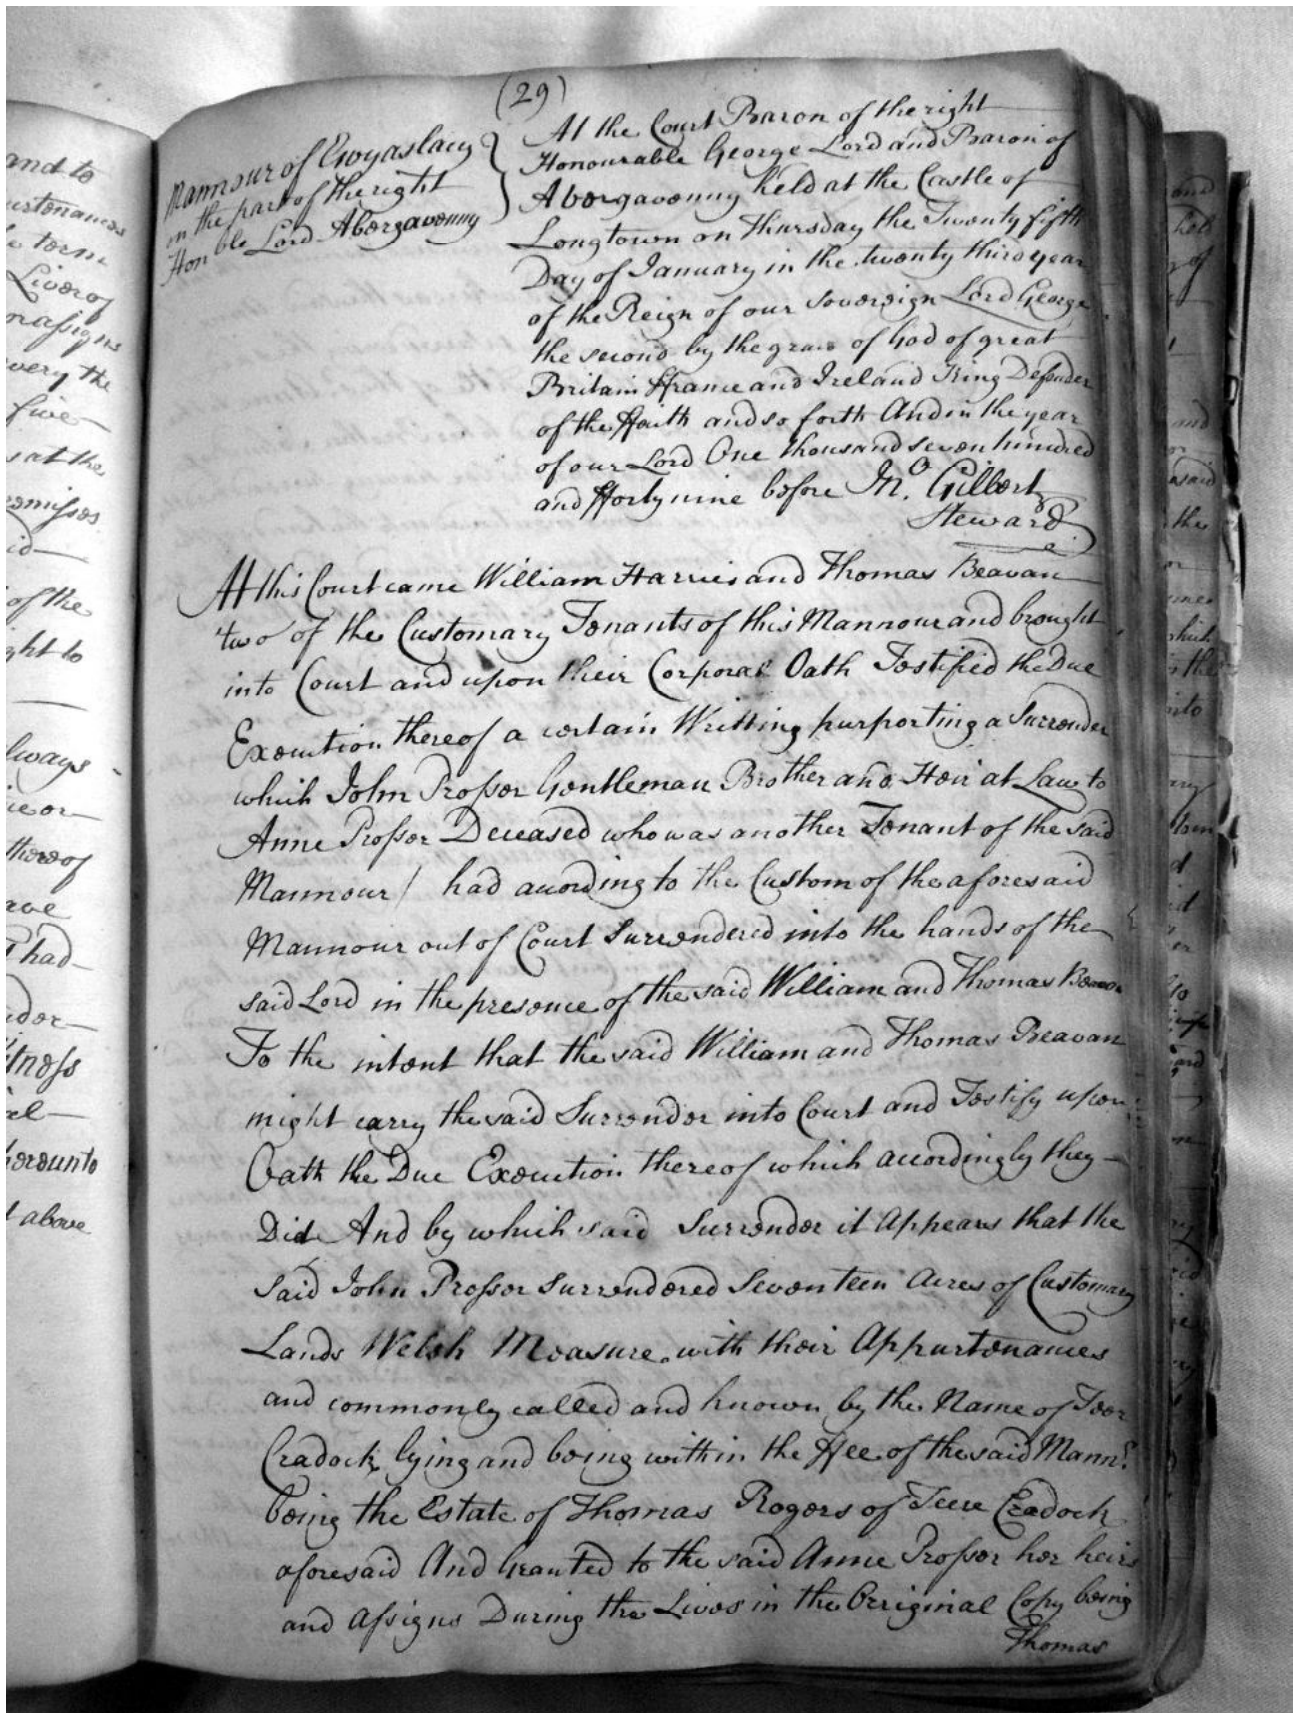 (29)
Mannour of Ewyaslacy
in the part of the right
Honble Lord Abergavenny
At the Court Baron of the right
Honourable George Lord and Baron of
Abergavenny held at the Castle of
Longtown on Thursday the Twenty fifth
Day of January in the twenty third year
of the Reign of our Sovereign Lord George
the second by the grace of God of great
Britain ffrance and Ireland King Defender
of the ffaith and so forth And in the year
of our Lord One thousand seven hundred
and fforty nine before Jno. Gilbert
Steward
At this Court came William Harris and Thomas Beavan
two of the Customary Tenants of this Mannour and brought
into Court and upon their Corporal Oath Testified the Due
Execution thereof a certain Writting purporting a Surrender
which John Prosser Gentleman Brother and Heir at Law to
Anne Prosser Deceased who was another Tenant of the said
Mannour / had acording to the Custom of the aforesaid
Mannour out of Court Surrendered into the hands of the
said Lord in the presence of the said William and Thomas Beavan
To the intent that the said William and Thomas Beavan
might carry the said Surrender into Court and Testify upon
Oath the Due Execution thereof which acordingly they
Did And by which said Surrender it Appears that the
said John Prosser Surrendered Seventeen Acres of Customary
Lands Welsh Measure with their Appurtenances
and commonly called and known by the Name of Teer
Cradock lying and being within the ffee of the said Mannr.
being the Estate of Thomas Rogers of Teere Cradock
aforesaid And Granted to the said Anne Prosser her heirs
and Assigns During the Lives in the Original Copy being
Thomas
and to
urtenances
term
Liver of
assigns
very the
five
at the
emisses
id
of the
ght to
lways
ie or
thereof
ave
had
der
itness
el
hereunto
above